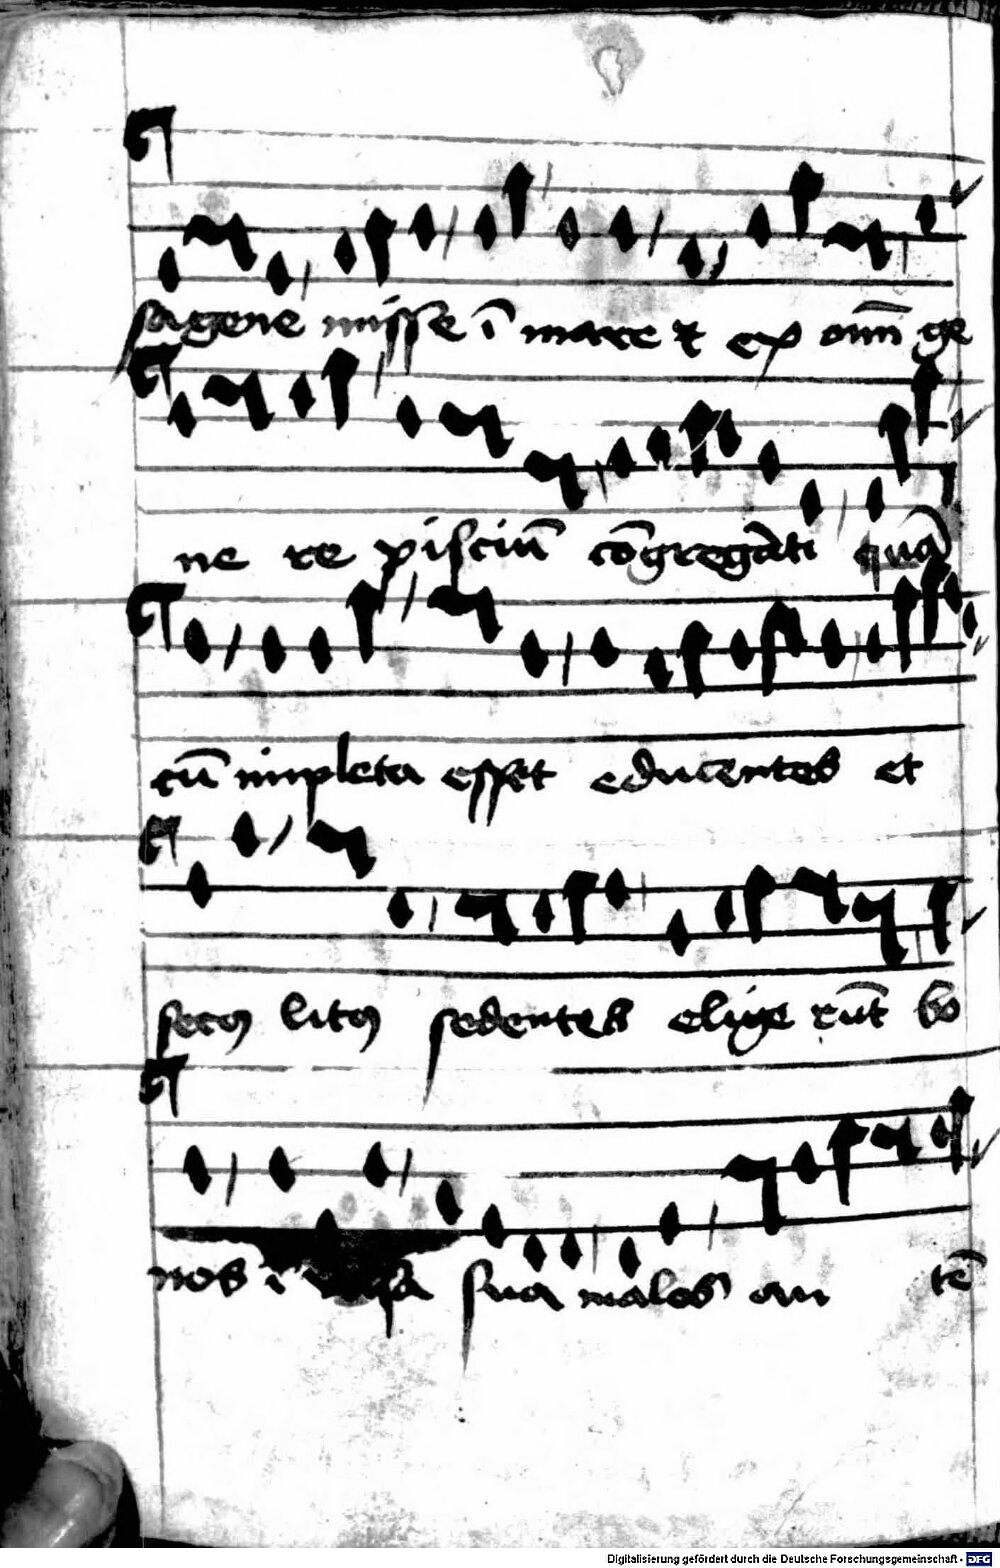 sagene misse ī mare ⁊ ex om̄ ge
ne re pisciū cōgregāti quā
cū impleta esset educentes et
secꝯ litꝯ sedentes elige rūt bo
nos ī vasa sua malos au tē
Digitalisierung gefördert durch die Deutsche Forschungsgemeinschaft - DFG